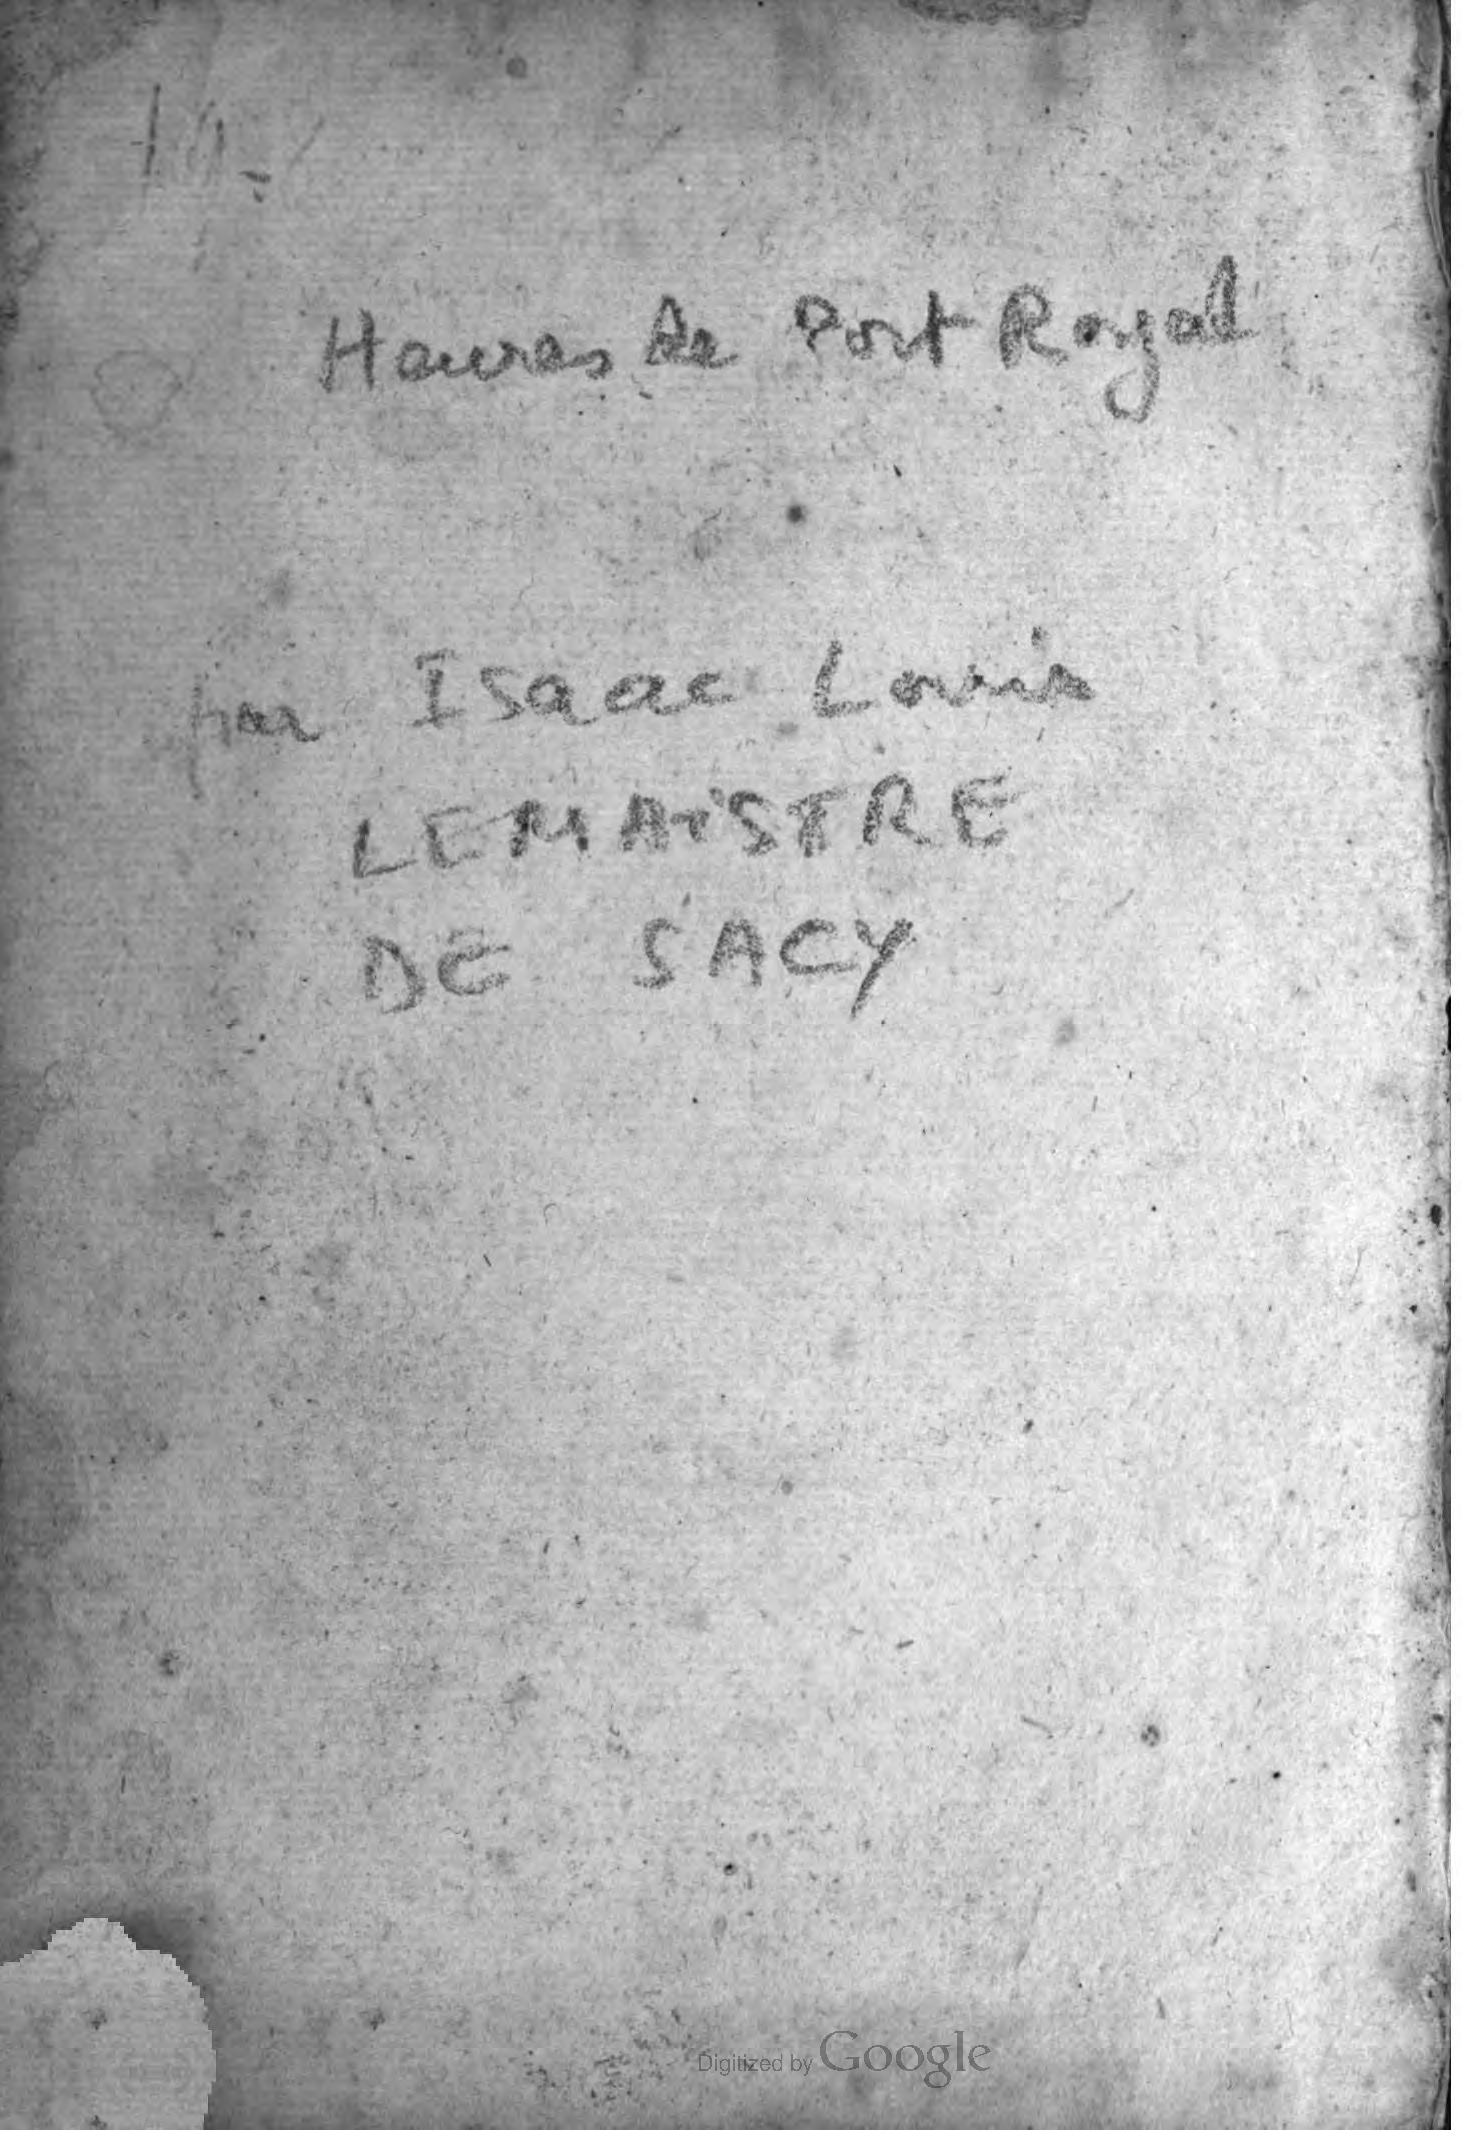 Heures de Port Royal
par Isaac Louis
LEMAiSTRE
DE SACY
Digitized by Google